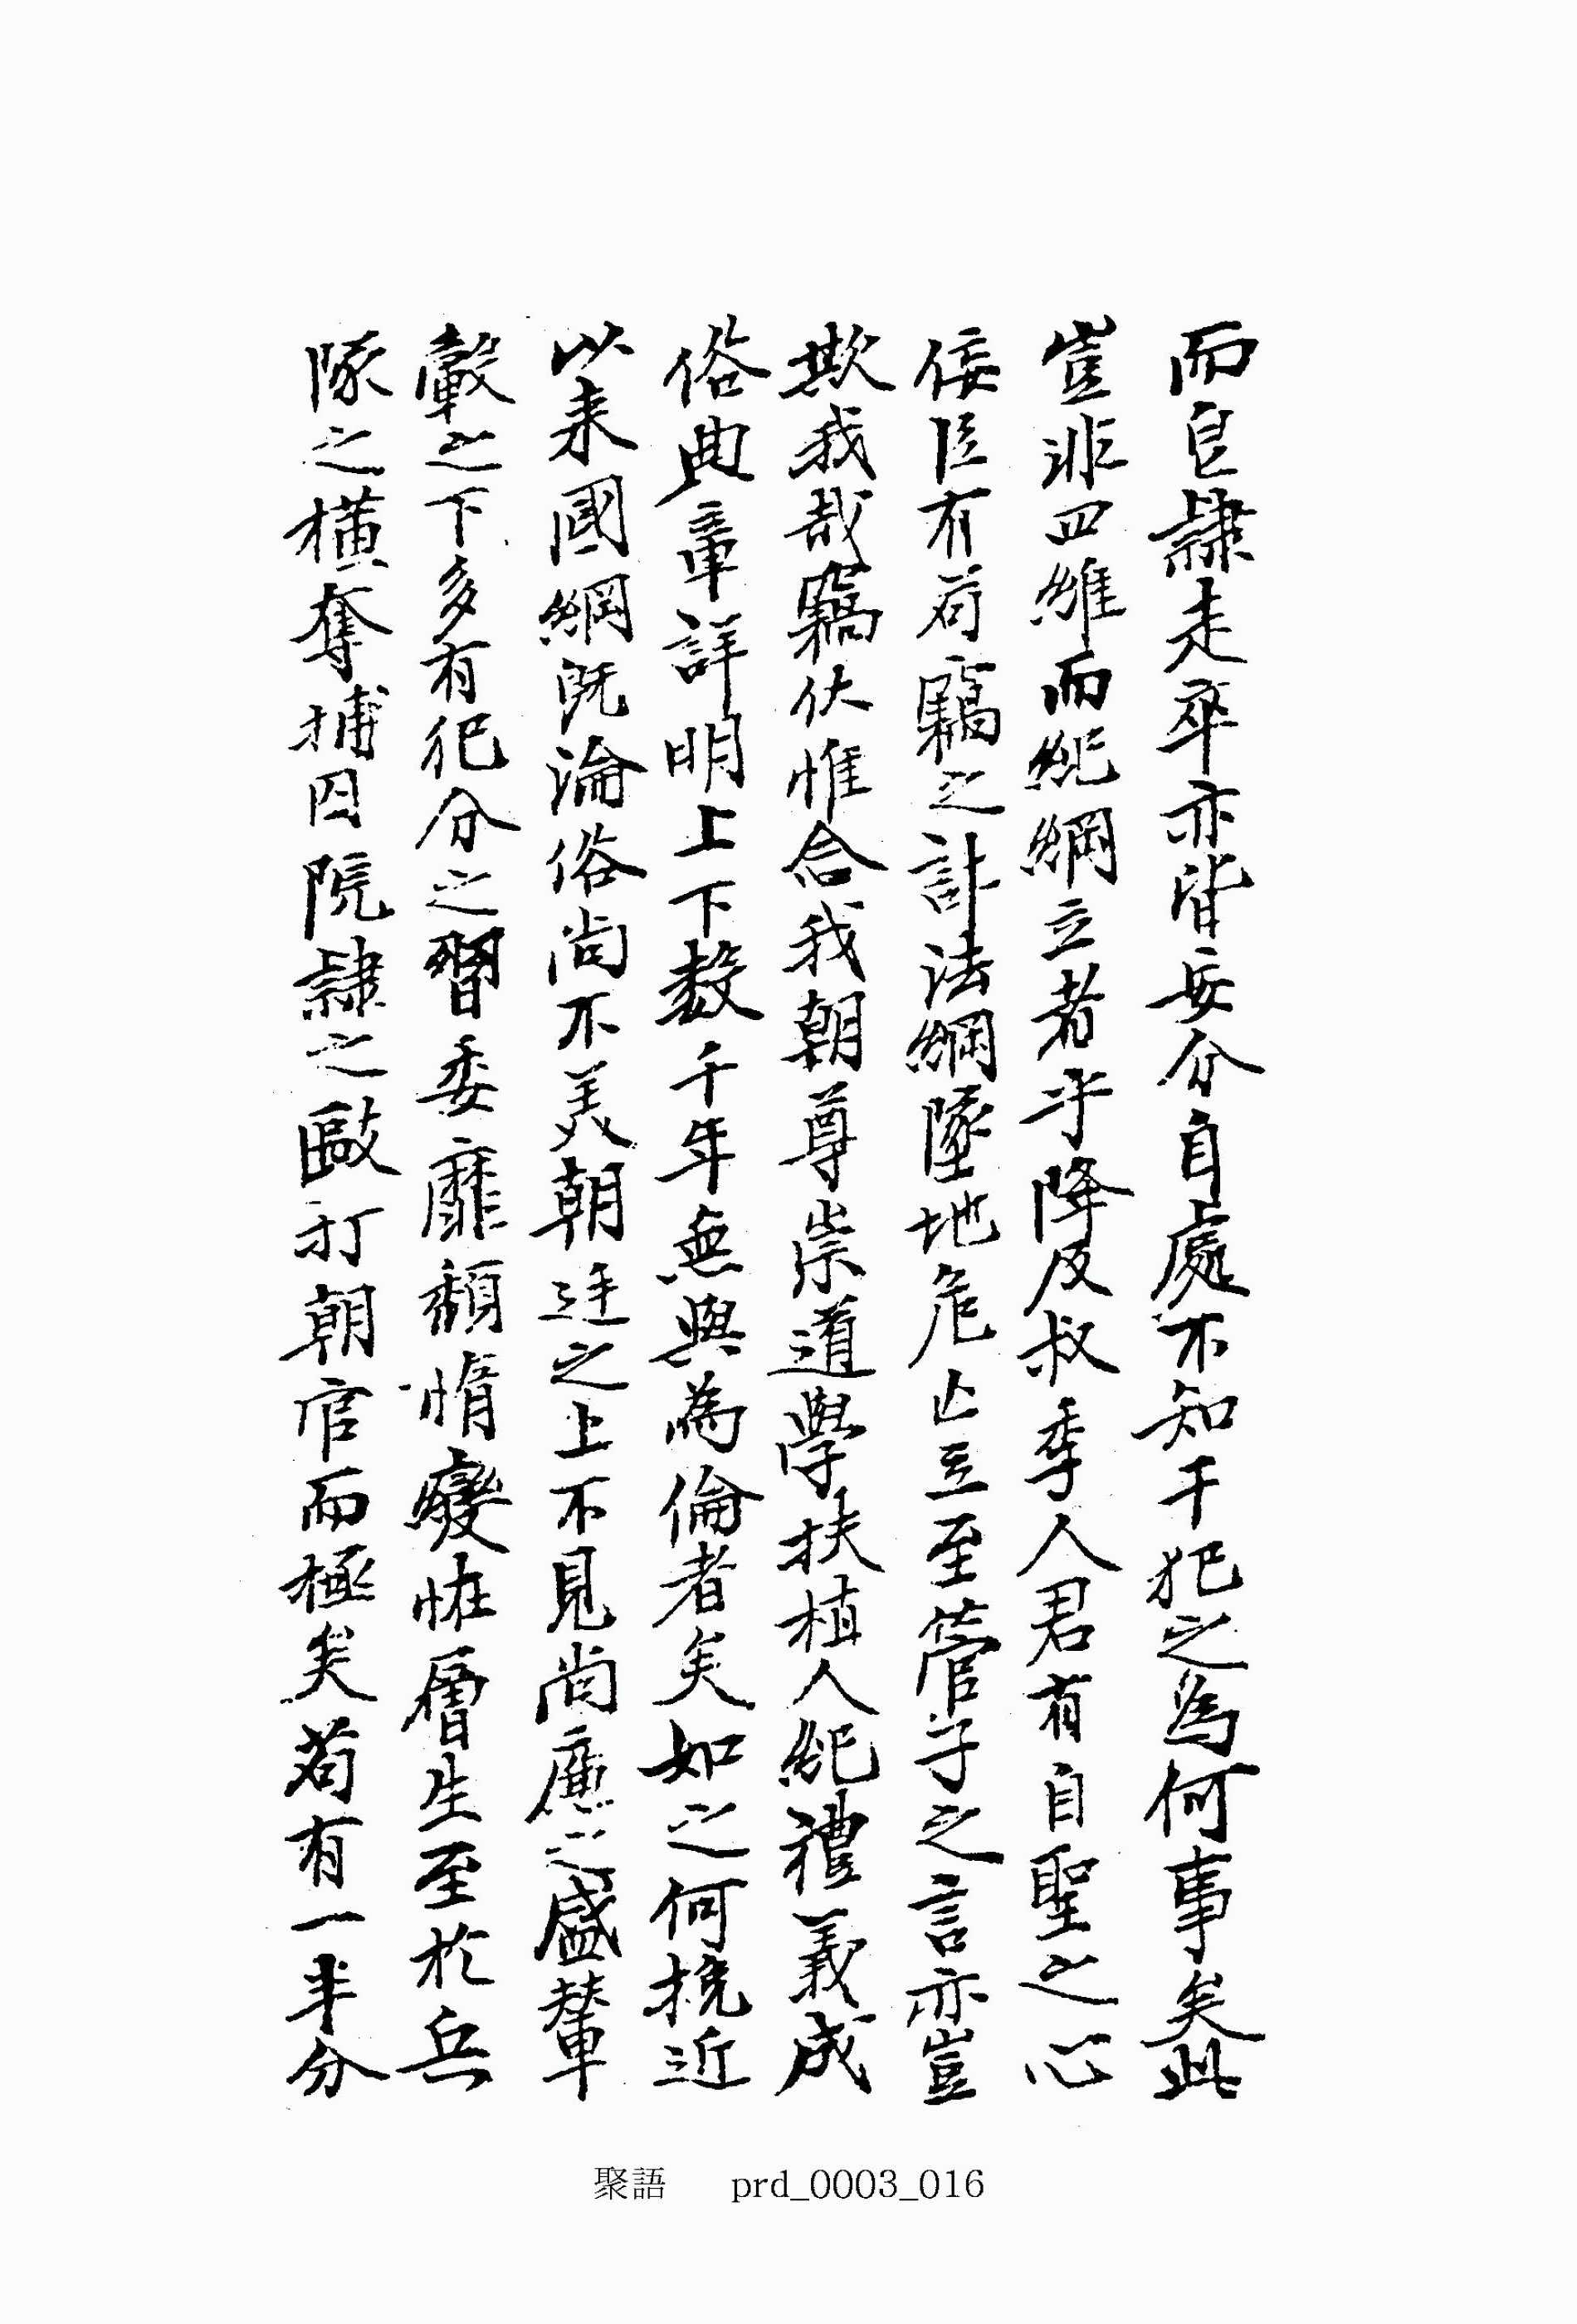 而皀隷走卒亦皆安分自處不知干犯之爲何事矣此
豈非四維而紀綱立者乎降及叔季人君有自聖之心
佞臣有苟竊之計法綱墜地危亡立至管子之言亦豈
欺我哉竊伏惟念我朝尊崇道學扶植人紀禮義成
俗典章詳明上下數千年無與為倫者矣如之何挽近
以来國綱旣淪俗尚不美朝廷之上不見尚廉之盛輦
轂之下多有犯分之習委靡頹惰變恠層生至於兵
隊之橫奪捕囚院隷之毆打朝官而極矣苟有一半分
聚語 prd_0003_016